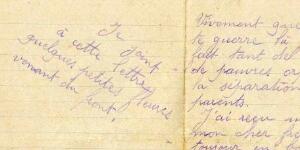 Je joint
à cette lettre
quelques petites fleures
venant du front.
Vivement que
te guerre là
fait tant de
de pauvres or
la séparation
parents.
J'ai reçu u
mon cher fr
toujour en b